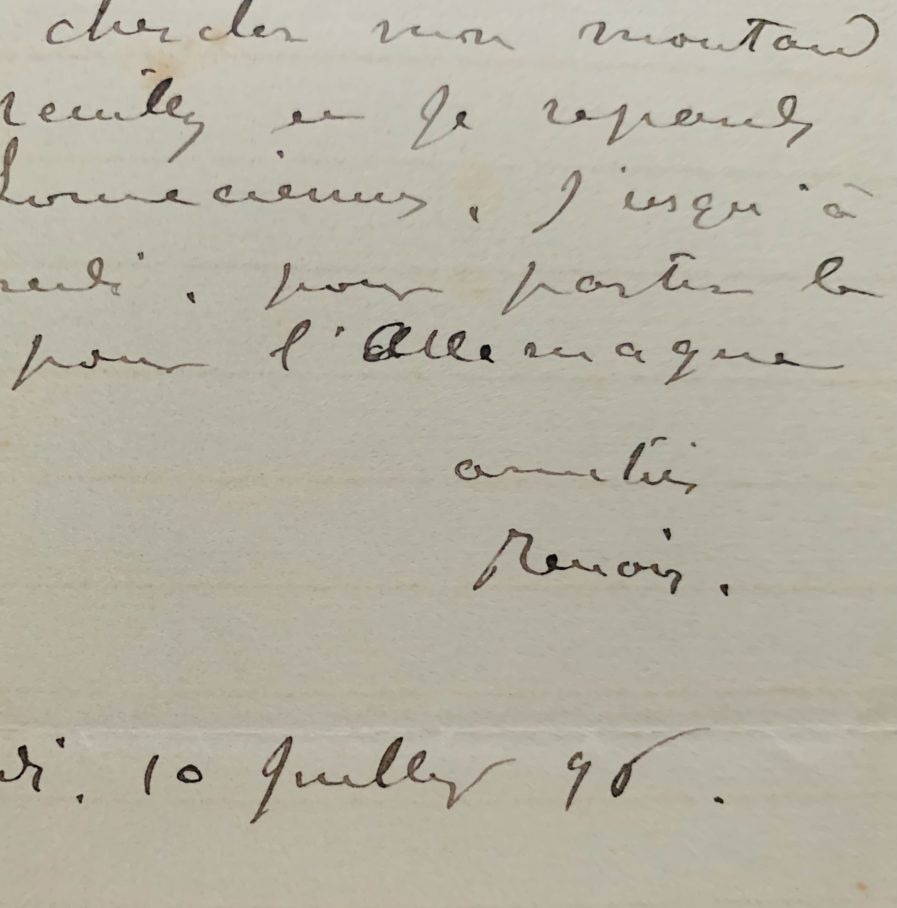 chercher mon moutard
reuilly et Je repars
Louveciennes. Jusqu'à
redi. pour partir le
pour l'Allemagne
amitiés
Renoir.
di. 10 Juillet 96.